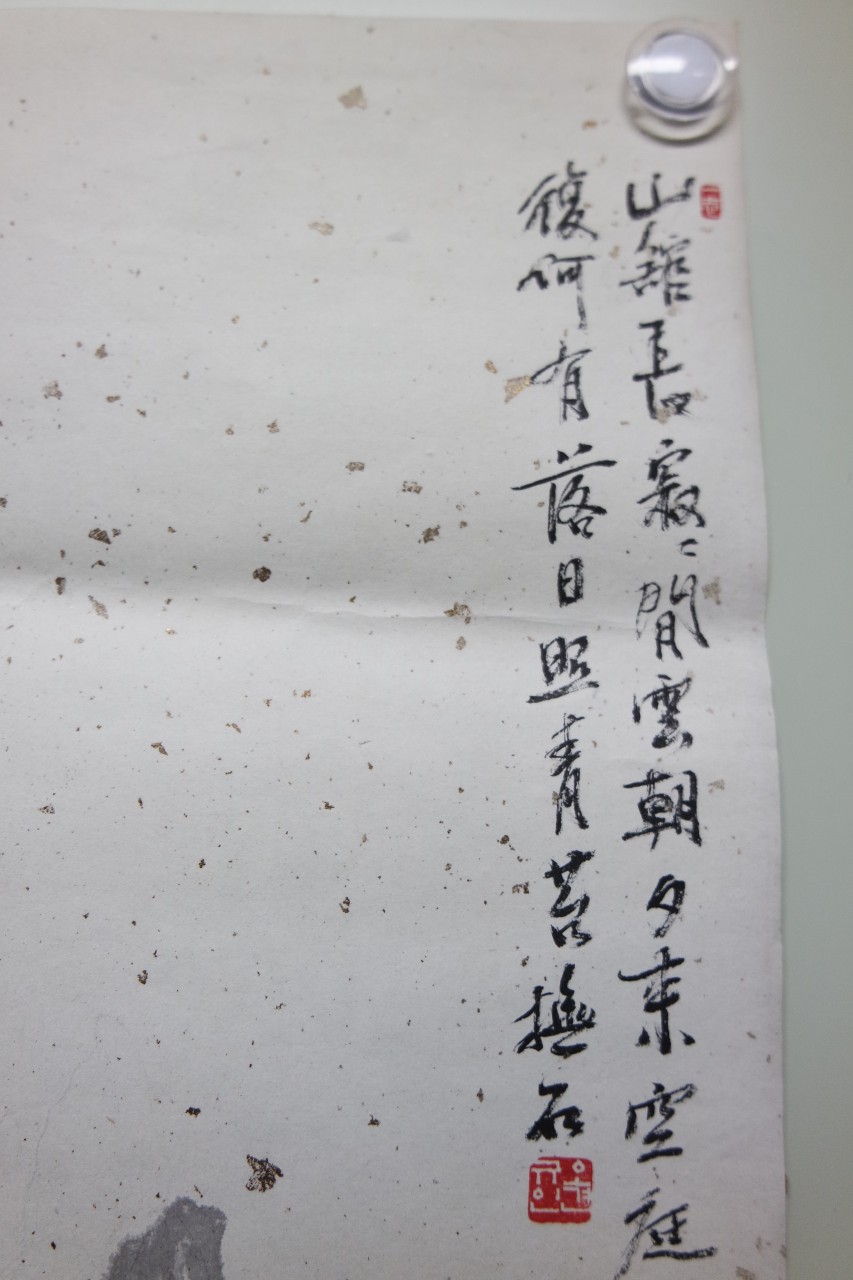 山館長寂〻閒雲朝夕來空庭
復何有落日照青苔撫石